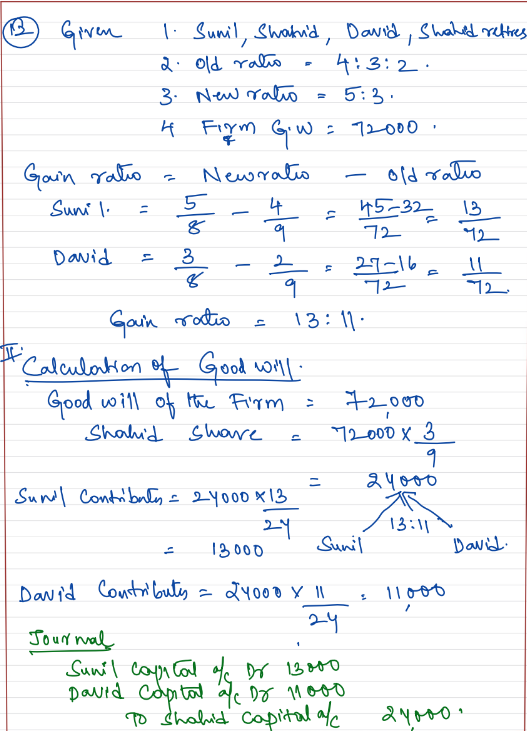 13 Given 1. Sunil, Shahid, David, Shahid retires
2. old ratio = 4:3:2.
3. New ratio = 5:3.
4 Firm G.W = 72000.
Gain ratio = New ratio - old ratio
Sunil. = 5/8 - 4/9 = 45-32/72 = 13/72
David = 3/8 - 2/9 = 27-16/72 = 11/72
Gain ratio = 13:11.
II. Calculation of Good will.
Good will of the Firm = 72,000
Shahid Share = 72000 x 3/9
= 24000
Sunil Contributes = 24000 x 13/24
13:11
= 13000 Sunil David.
David Contributes = 24000 x 11/24 = 11,000
Journal
Sunil Capital a/c Dr 13000
David Capital a/c Dr 11000
To Shahid Capital a/c 24000.